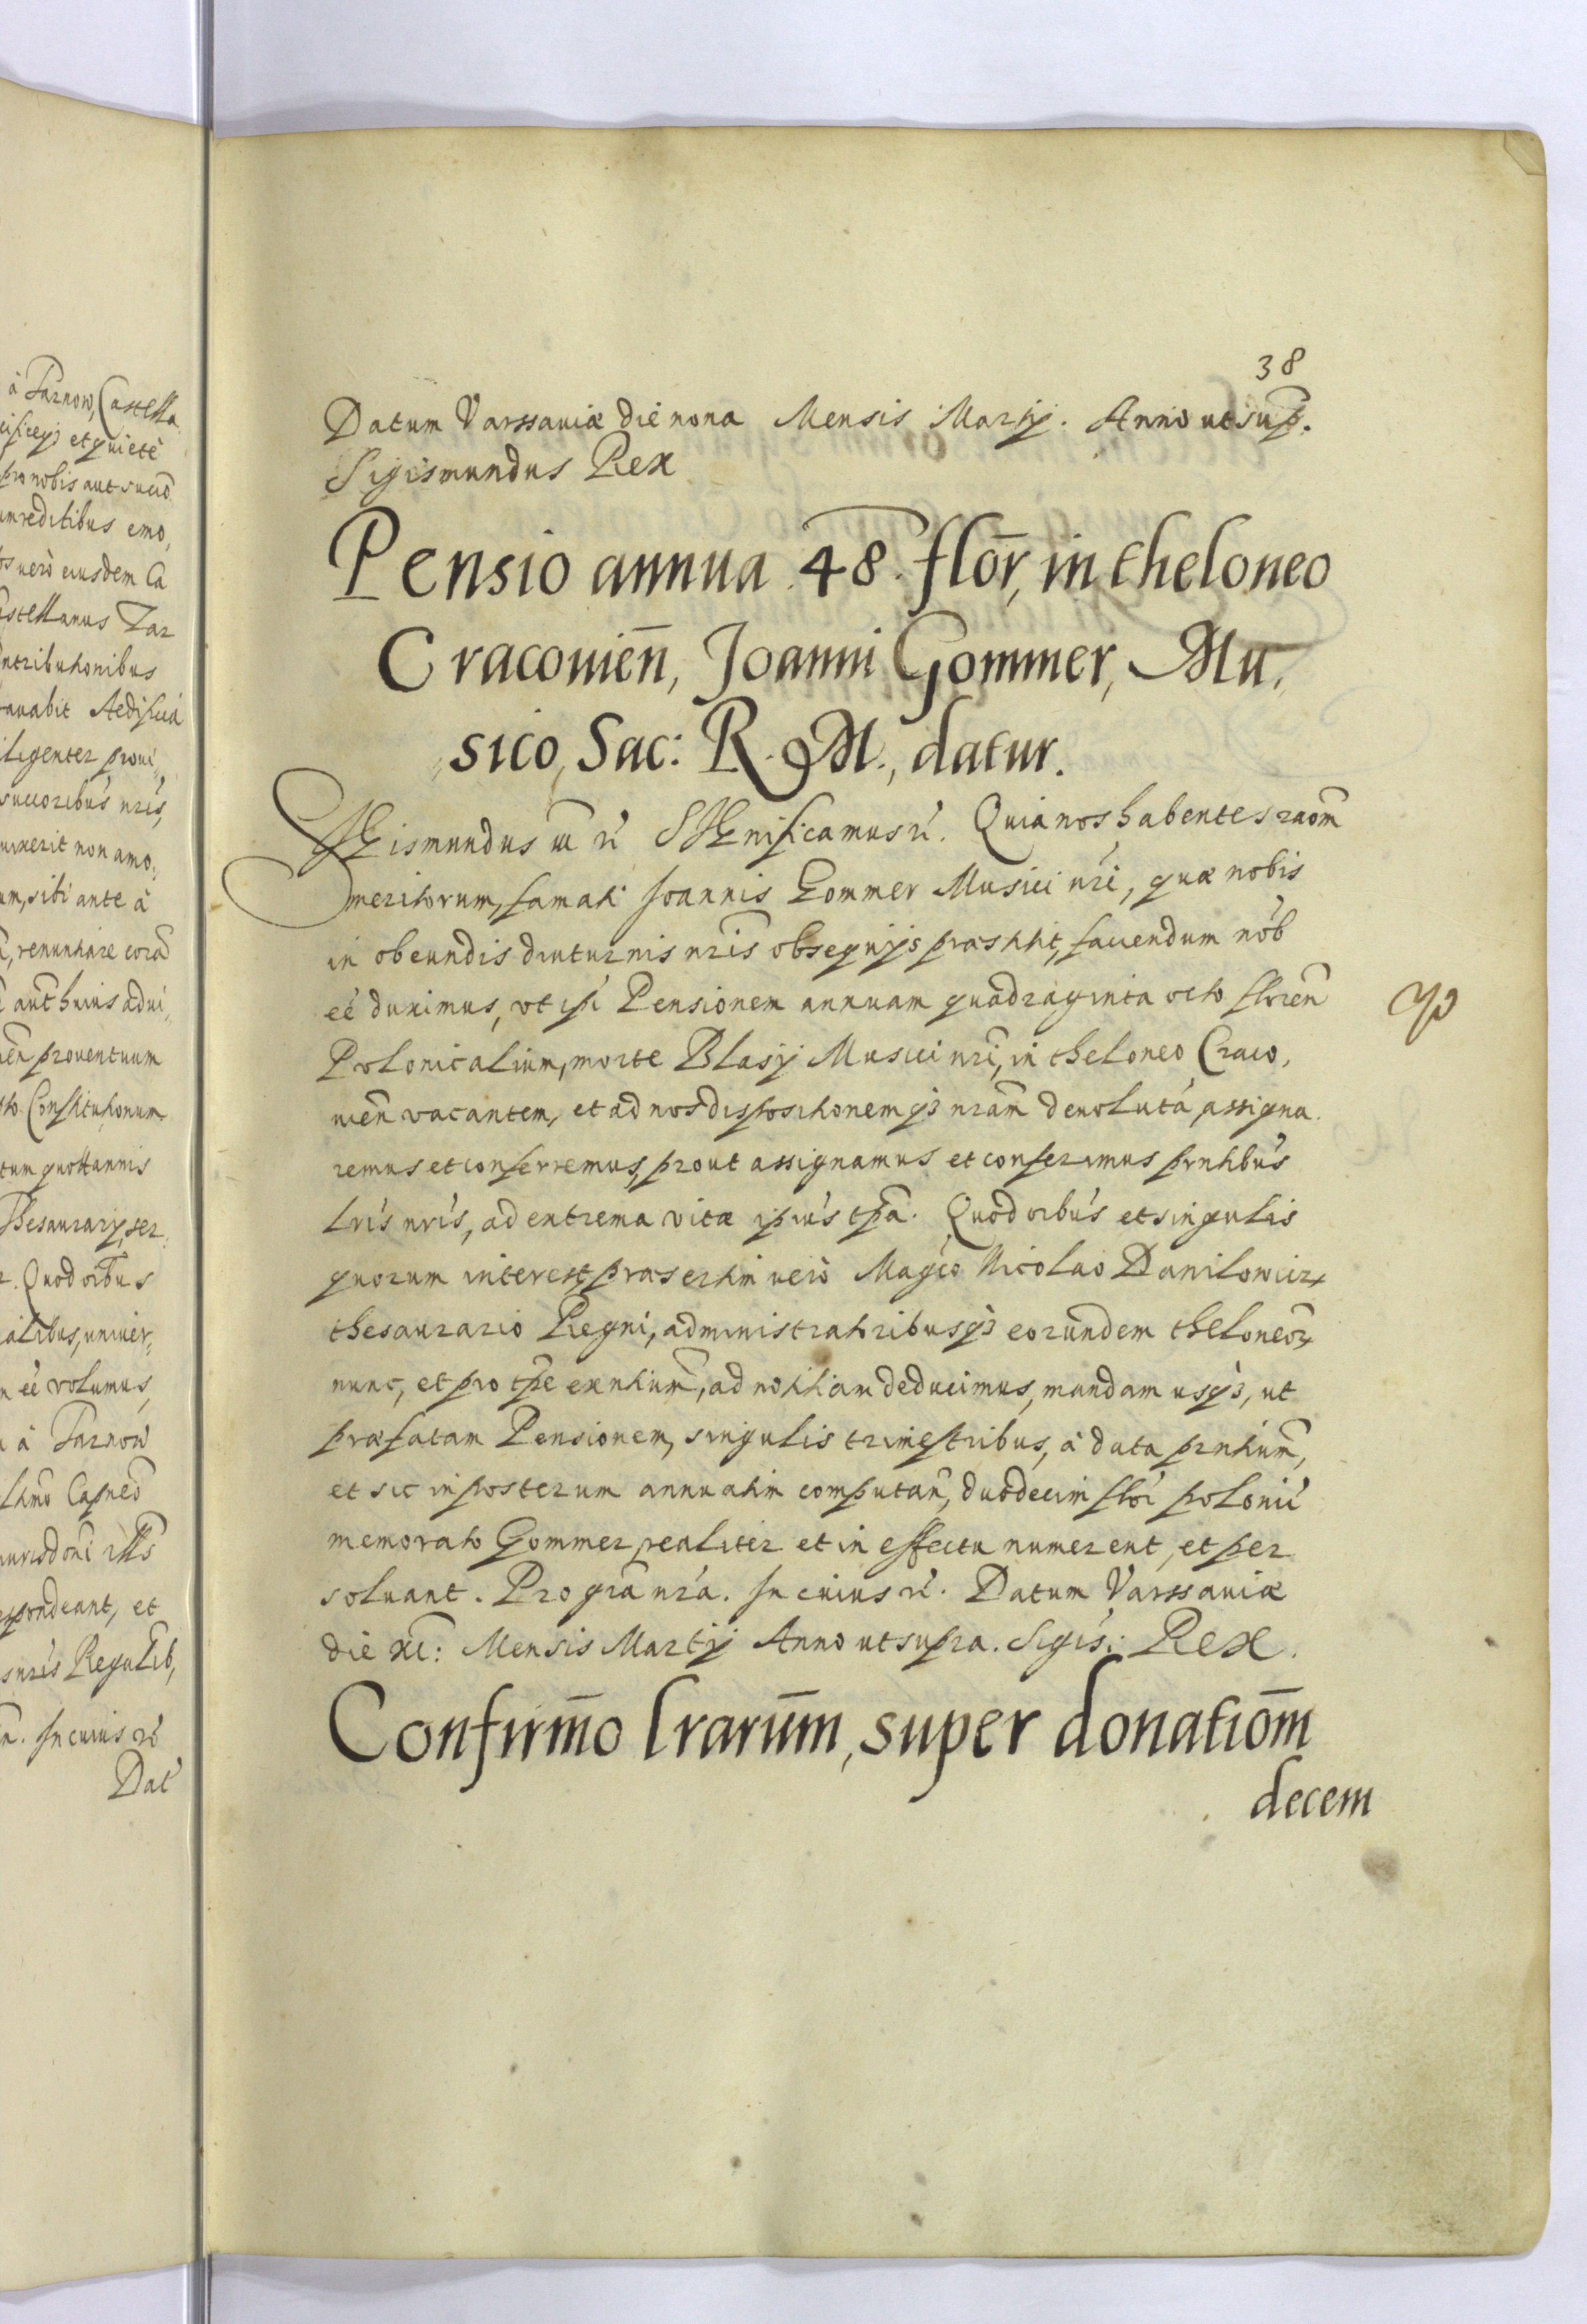 38
Datum Varssauiæ die nona Mensis Martij. Anno ut sup.
Sigismundus Rex
Pensio annua 48. flōr, in theloneo
Cracouieñ, Joanni Gommer, Mu,
sico, Sac: R. M., datur.
Sigismundus III rc̄ Significamus rc̄. Quia nos habentes raōm
meritorum, famati Joannis Gommer Musici nri, quæ nobis
in obeundis diuturnis nris obsequijs præstitit, faciendum nob
eē duximus, vt ipsi Pensionem annuam quadraginta octo floren̄
Polonicalium, morte Blasij Musici nri, in theloneo Craco,
uien̄ vacantem, et ad nos dispositionemq3 nram deuolutā, assigna
remus et conferremus, prout assignamus et conferimus pn̄tibus
lris nris, ad extrema vitæ ipius tpa. Quod oibus et singulis
quorum interest præsertim vero Magco Nicolao Danilowicz
thesaurario Regni, administratoribusq3 eorundem theloneor
nunc, et pro tpe exntium, ad notitiam deducimus, mandamusq3, ut
præfatam Pensionem, singulis trimestribus, à data pn̄tium,
et sic in posterum annuatim computan̄, duodecim flor polonic
memorato Gommer, realiter et in effectu numerent, et per
soluant. Pro gra nra. In cuius rc̄. Datum Varssauiæ
die XI: Mensis Martij Anno ut supra. Sigis: Rex.
Confirm̄o lrarum̄, super donatiōm
decem
à Tarnow, Castella
et quietè
pro nobis aut succo
reditibus emo,
uerò eiusdem Ca
Castellanus Tar
ntributionibus
Aedificia
iligenter proui,
succoribus nris,
uixerit non amo,
um, sibi ante à
renuntiare cora
aut huius adui,
prouentuum
Constitutionum
tum quottannis
Thesaurarij, ser
Quod oibus
alibus, uniuer,
eē volumus,
à Tarnow
Capneo
iurisdoni
spondeant, et
nris Regalib,
In cuius rc̄
Dat